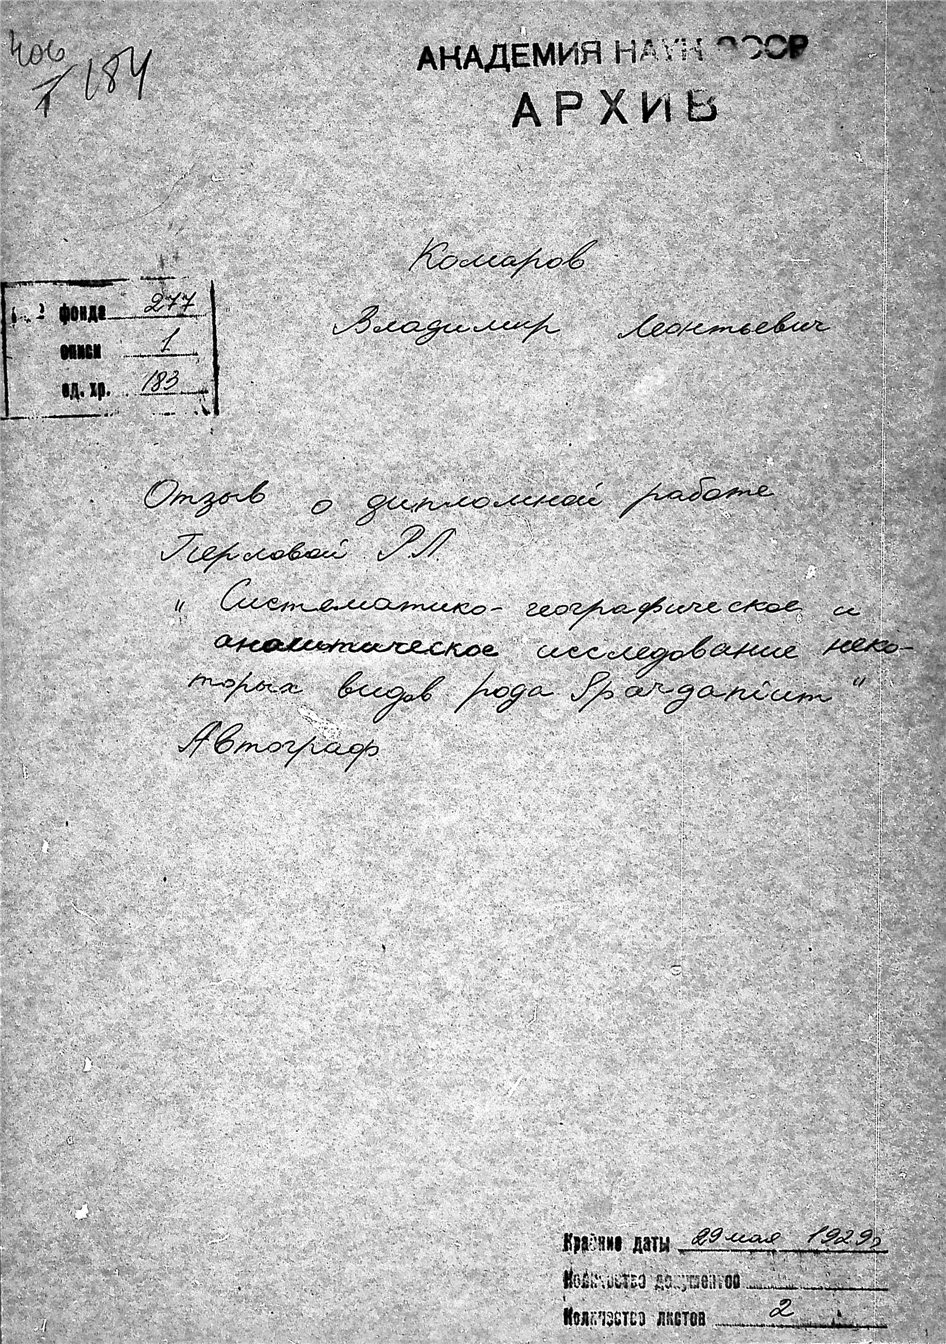 АКАДЕМИЯ НАУК СССР
АРХИВ
184
Комаров
Владимир Леонтьевич
№ фонда 277
описи 1
ед. хр. 183
Отзыв о дипломной работе
Перловой Р.Л.
"Систематико-географическое и
аналитическое исследование неко-
торых видов рода Sparganium"
Автограф
Крайние даты 29 мая 1929 г
Количество документов
Количество листов 2